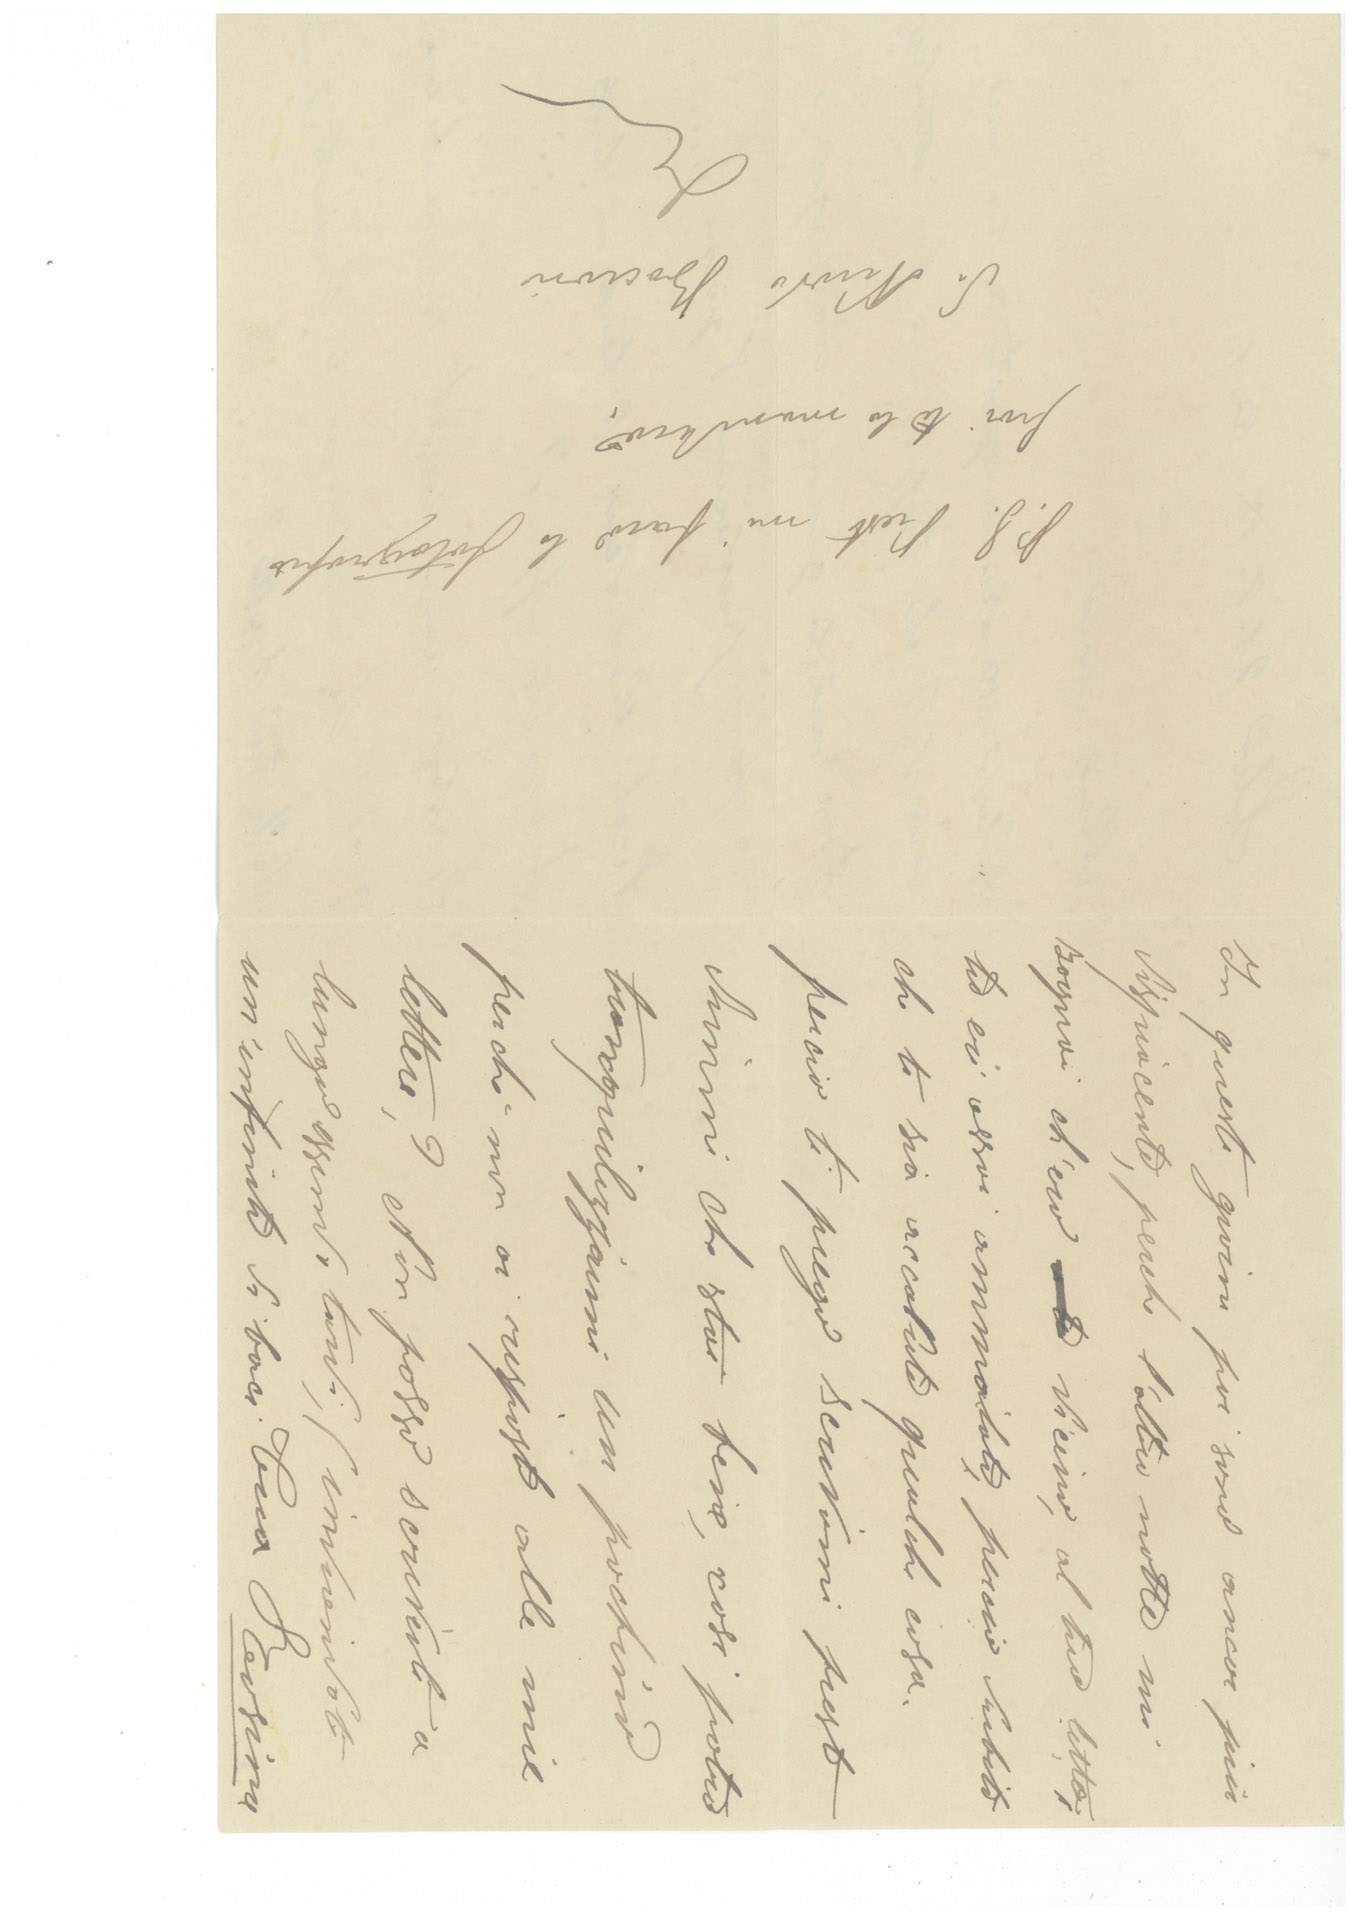 In questi giorni poi sono ancor più
dispiacente, perché l'altra notte mi
sognai ch'ero vicino al tuo letto,
tu eri assai ammalato, perciò subito
che ti sia accaduto qualche cosa.
perciò ti prego scrivimi presto
dimmi che stai bene, così potrò
tranquilizzarmi un pochino
perché non ai risposto alle mie
lettere, ? Non posso scriverti a
lungo essendo tardi, inviandoti
un'infinità di baci. tua Rosina
P.S. Presto mi farò la fotografia
poi te la manderò,